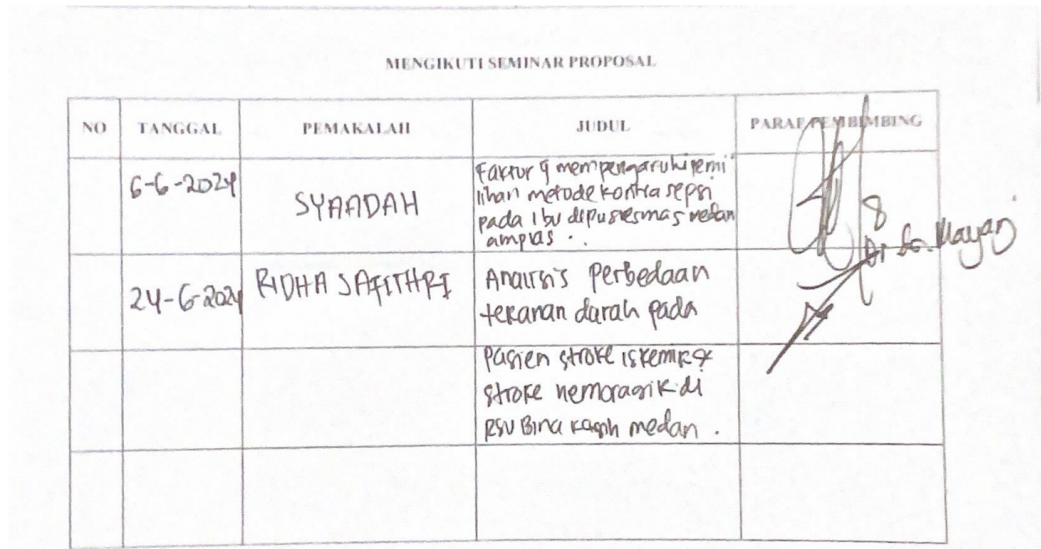 MENGIKUTI SEMINAR PROPOSAL
NO TANGGAL PEMAKALAH JUDUL PARAF PEMBIMBING
6-6-2024 SYAADAH
Faktor yg mempengaruhi pemi
lihan metode kontrasepsi
pada Ibu dipuskesmas medan
amplas .
24-6-2024 RIDHA SAFITHRI
Analisis perbedaan
tekanan darah pada
pasien stroke iskemik &
stroke hemoragik di
RSU Bina Kasih medan .